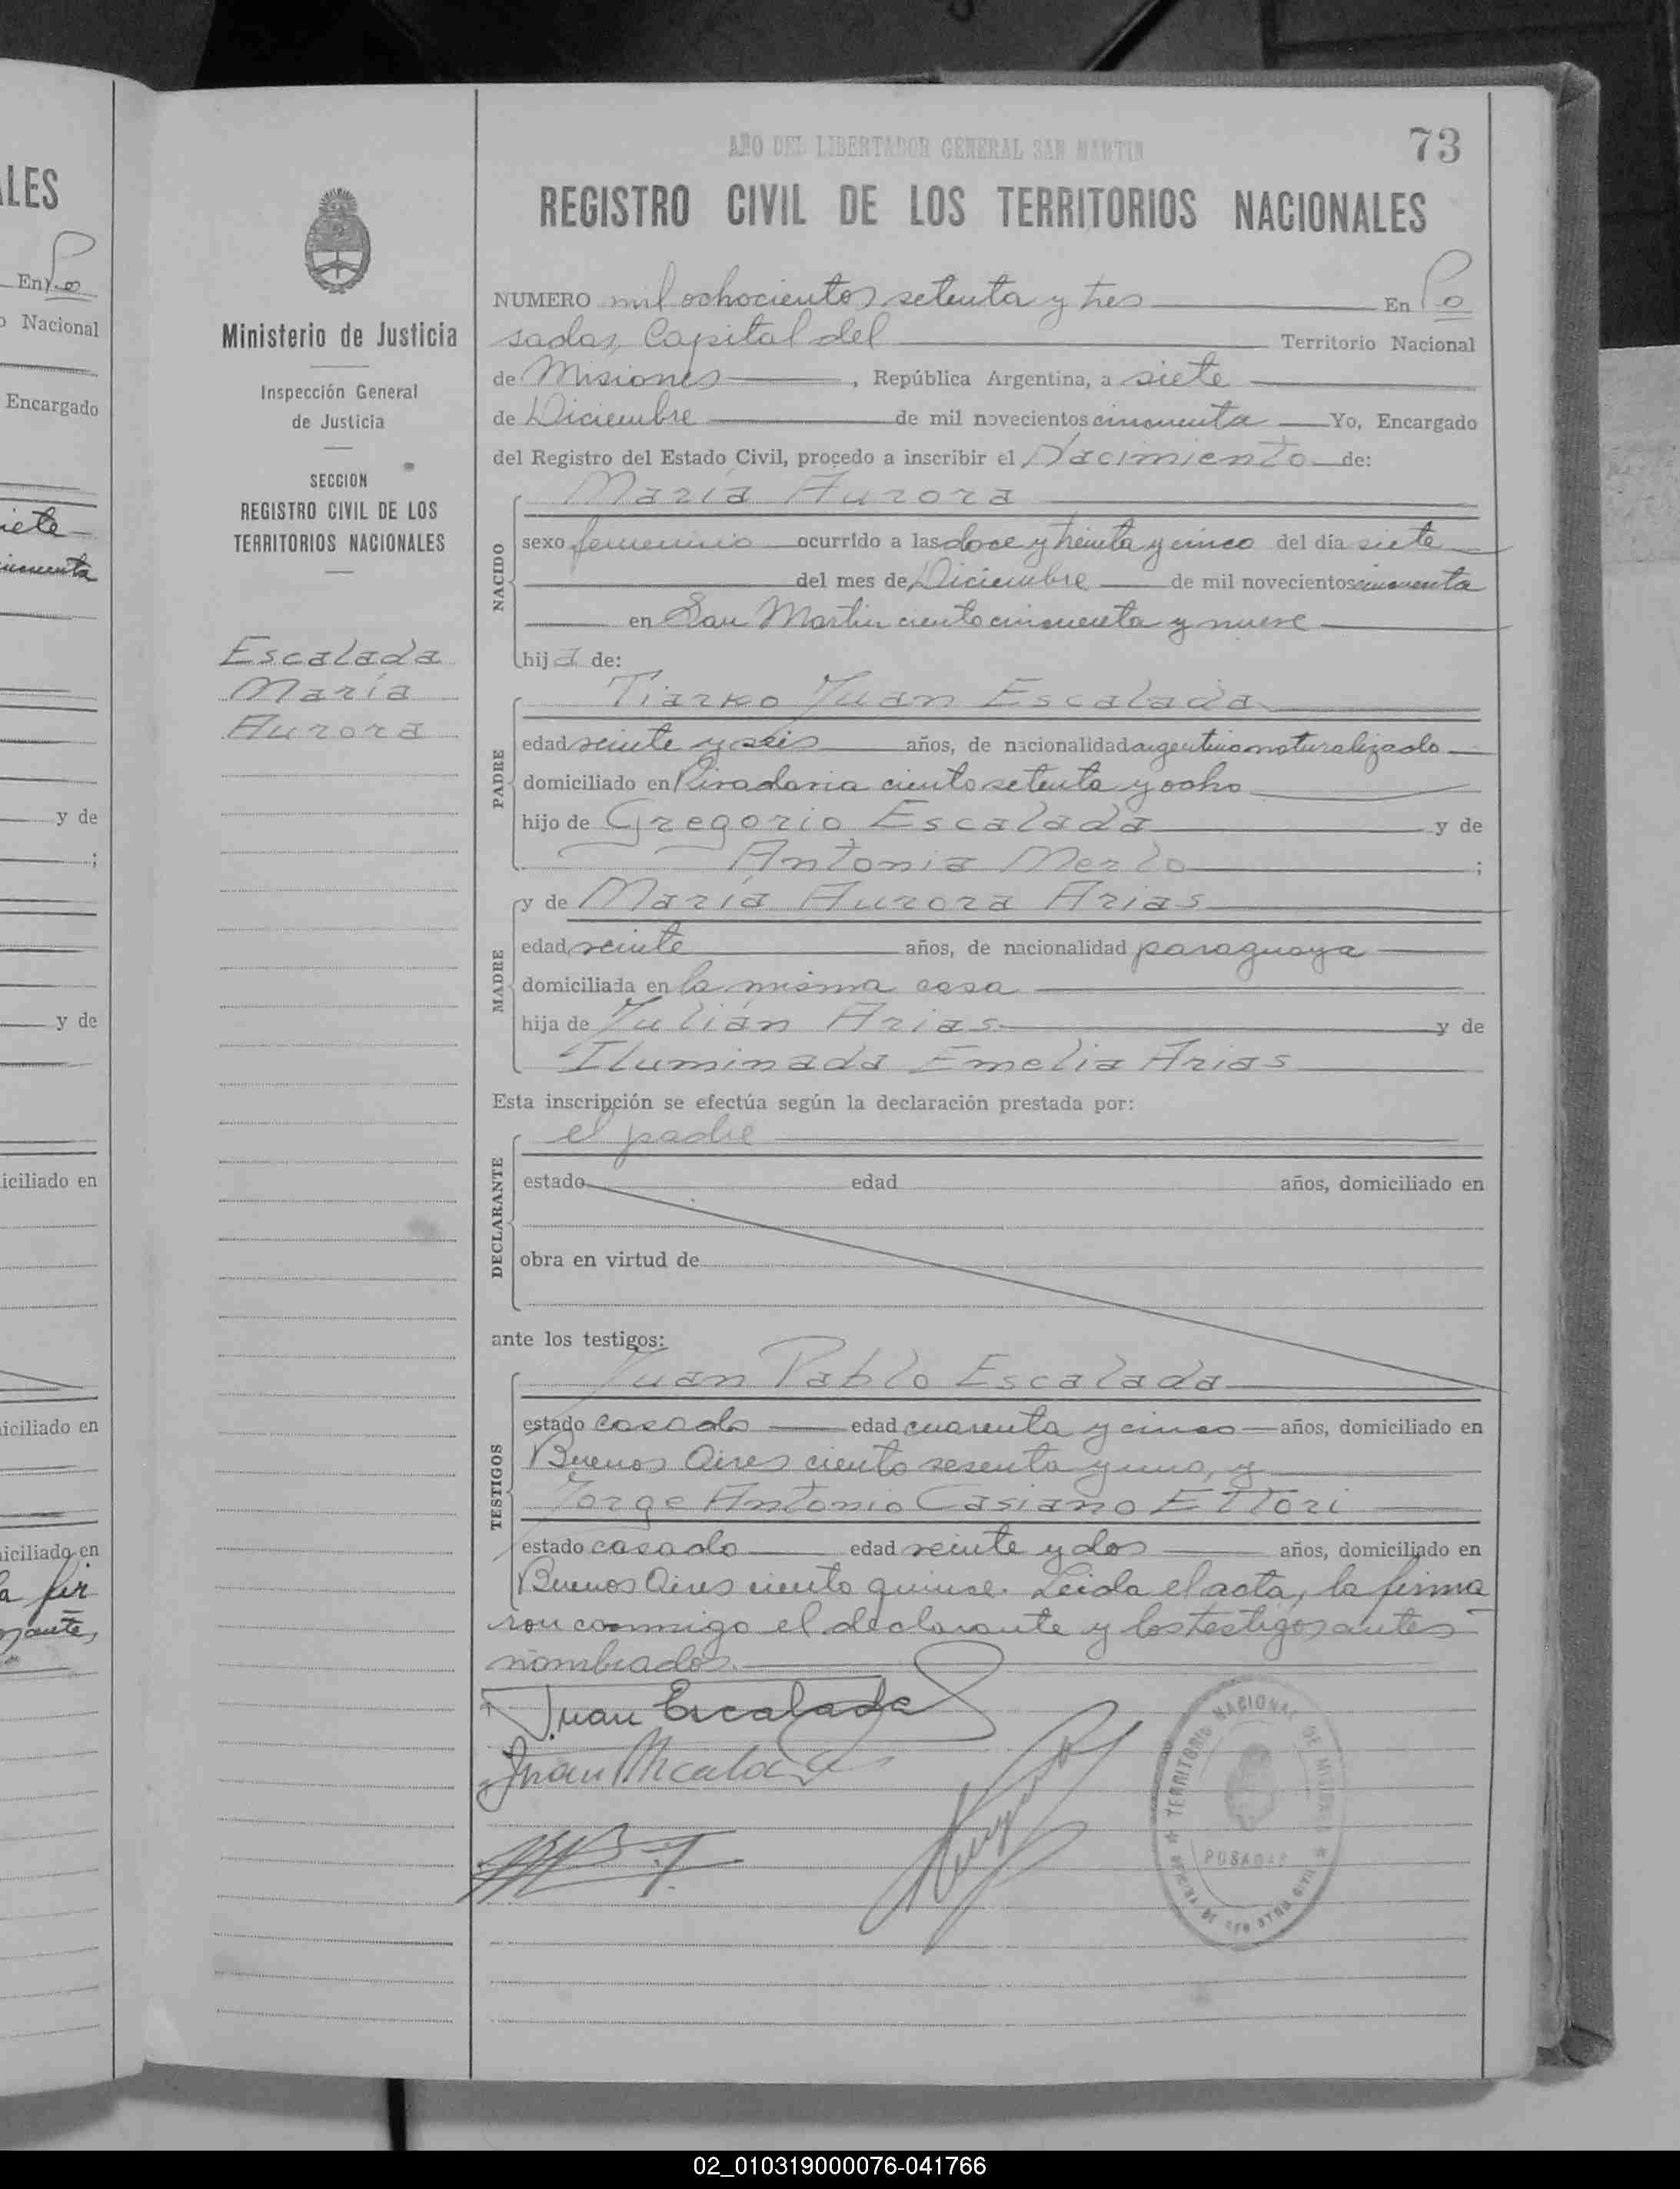 AÑO DEL LIBERTADOR GENERAL SAN MARTIN
73
REGISTRO CIVIL DE LOS TERRITORIOS NACIONALES
Ministerio de Justicia
Inspección General
de Justicia
SECCION
REGISTRO CIVIL DE LOS
TERRITORIOS NACIONALES
Escalada
María
Aurora
NUMERO mil ochocientos setenta y tres En Po
sadas, Capital del Territorio Nacional
de Misiones, República Argentina, a siete
de Diciembre de mil novecientos cincuenta Yo, Encargado
del Registro del Estado Civil, procedo a inscribir el Nacimiento de:
María Aurora
NACIDO
sexo femenino ocurrido a las doce y treinta y cinco del día siete
del mes de Diciembre de mil novecientos cincuenta
en San Martin ciento cincuenta y nueve
hija de:
Tiarko Juan Escalada
PADRE
edad veinte y seis años, de nacionalidad argentino naturalizado
domiciliado en Rivadavia ciento setenta y ocho
hijo de Gregorio Escalada y de
Antonia Merlo ;
y de María Aurora Arias
MADRE
edad veinte años, de nacionalidad paraguaya
domiciliada en la misma casa
hija de Julián Arias y de
Iluminada Emelia Arias
Esta inscripción se efectúa según la declaración prestada por:
el padre
DECLARANTE
estado edad años, domiciliado en
obra en virtud de
ante los testigos:
Juan Pablo Escalada
TESTIGOS
estado casado edad cuarenta y cinco años, domiciliado en
Buenos Aires ciento sesenta y uno, y
Jorge Antonio Casiano Ettori
estado casado edad veinte y dos años, domiciliado en
Buenos Aires ciento quince. Leida el acta, la firma
ron conmigo el declarante y los testigos antes
nombrados.
T. Juan Escalada
Juan Escalada
TERRITORIO NACIONAL DE MISIONES
POSADAS
OFICINA DE REGISTRO CIVIL
LES
En Po
o Nacional
Encargado
iete
incuenta
y de
;
y de
iciliado en
iciliado en
iciliado en
a fir
antes,
02_010319000076-041766